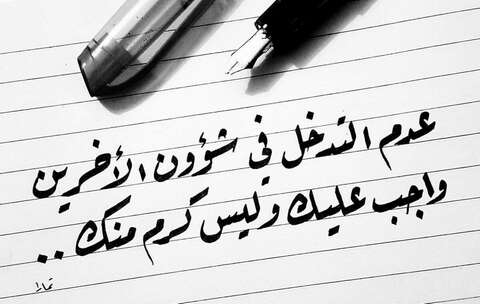 عدم التدخل في شؤون الأخرين
واجب عليك وليس كرم منك ..